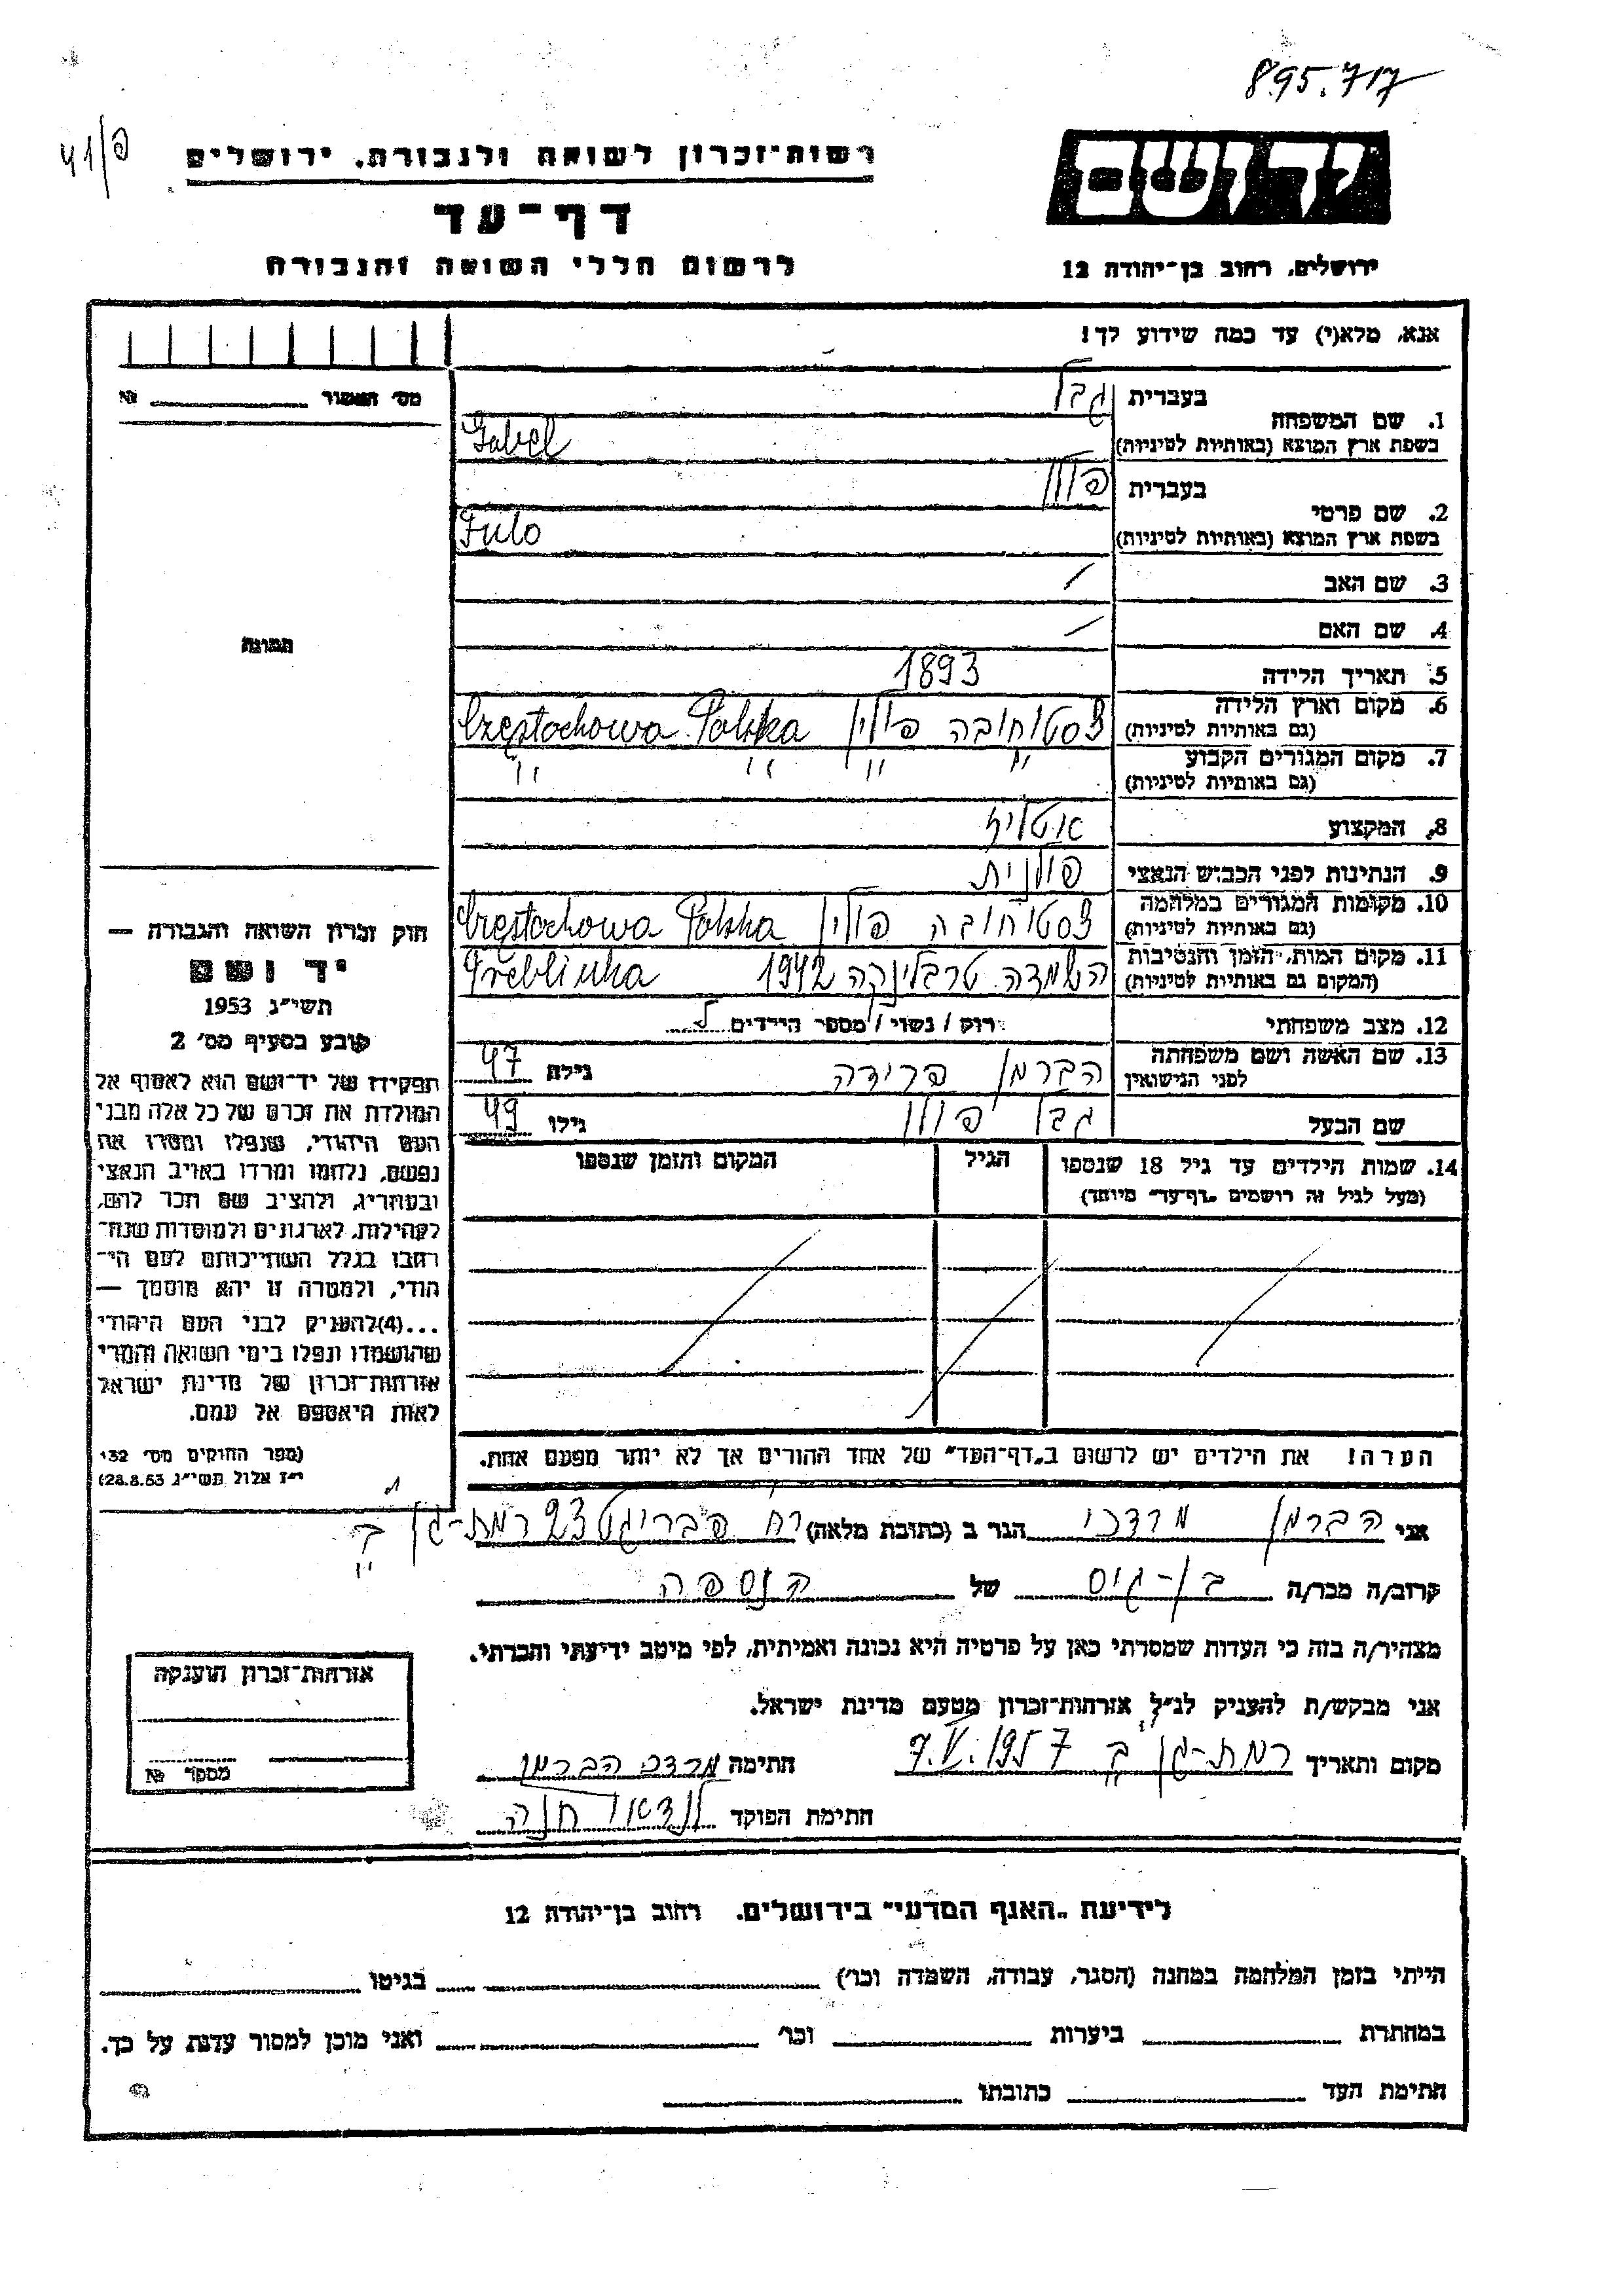 895.717
41/פ
רשות־זכרון לשואה ולגבורה, ירושלים
דף־עד
לרשום חללי השואה והגבורה
ידושם
ירושלים, רחוב בן־יהודה 12
אנא, מלא(י) עד כמה שידוע לך!
מס' האשור № 
1. שם המשפחה
בעברית גבל
בשפת ארץ המוצא (באותיות לטיניות) Gabel
2. שם פרטי
בעברית
בשפת ארץ המוצא (באותיות לטיניות)
3. שם האב /
4. שם האם /
תמונה
5. תאריך הלידה 1893
6. מקום וארץ הלידה (גם באותיות לטיניות) צ'סטוחובה פולין Częstochowa Polska
7. מקום המגורים הקבוע (גם באותיות לטיניות) " " " "
8. המקצוע
9. הנתינות לפני הכבוש הנאצי פולנית
10. מקומות המגורים במלחמה (גם באותיות לטיניות) צ'סטוחובה פולין Częstochowa Polska
11. מקום המות, הזמן והנסיבות (המקום גם באותיות לטיניות) השמדה טרבלינקה 1942 Treblinka
12. מצב משפחתי רוק / נשוי / מספר הילדים
13. שם האשה ושם משפחתה לפני הנישואין הברמן פרידה גילה 47
שם הבעל גבל גילו 49
14. שמות הילדים עד גיל 18 שנספו
(מעל לגיל זה רושמים "דף־עד" מיוחד)
הגיל
המקום והזמן שנספו
הערה! את הילדים יש לרשום ב"דף־העד" של אחד ההורים אך לא יותר מפעם אחת.
חוק זכרון השואה והגבורה —
יד ושם
תשי"ג 1953
קובע בסעיף מס' 2
תפקידו של יד־ושם הוא לאסוף אל
המולדת את זכרם של כל אלה מבני
העם היהודי, שנפלו ומסרו את
נפשם, נלחמו ומרדו באויב הנאצי
ובעוזריו, ולהציב שם וזכר להם,
לקהילות, לארגונים ולמוסדות שנח־
רבו בגלל השתייכותם לעם הי־
הודי, ולמטרה זו יהא מוסמך —
...(4)להעניק לבני העם היהודי
שהושמדו ונפלו בימי השואה והמרי
אזרחות־זכרון של מדינת ישראל
לאות היאספם אל עמם.
(ספר החוקים מס' 132
י"ז אלול תשי"ג 28.8.53)
אני הברמן מרדכי הגר ב (כתובת מלאה) רח הבריגטה 23 רמת־גן
קרוב/ה מכר/ה בן־גיס של הנספה
מצהיר/ה בזה כי העדות שמסרתי כאן על פרטיה היא נכונה ואמיתית, לפי מיטב ידיעתי והכרתי.
אני מבקש/ת להעניק לנ"ל אזרחות־זכרון מטעם מדינת ישראל.
מקום ותאריך רמת־גן 7.V.1957 חתימה מרדכי הברמן
חתימת הפוקד לנדאו חנה
אזרחות־זכרון הוענקה
מספר №
לידיעת "האגף המדעי" בירושלים. רחוב בן־יהודה 12
הייתי בזמן המלחמה במחנה (הסגר, עבודה, השמדה וכו') בגיטו
במחתרת ביערות וכו' ואני מוכן למסור עדות על כך.
חתימת העד כתובתו